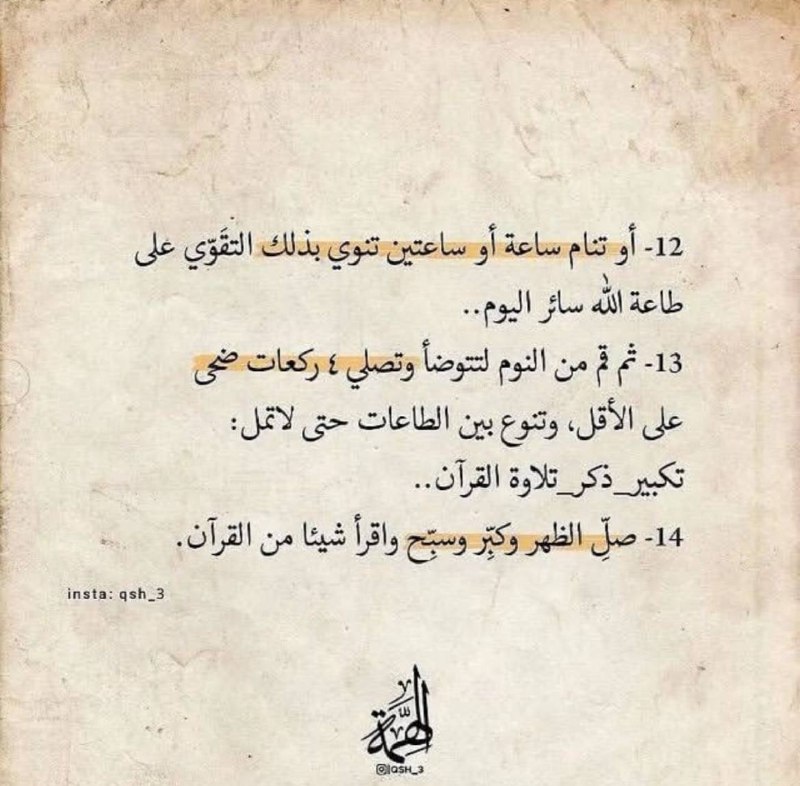 12- أو تنام ساعة أو ساعتين تنوي بذلك التقَوّي على
طاعة الله سائر اليوم..
13- ثم قم من النوم لتتوضأ وتصلي ٤ ركعات ضحى
على الأقل، وتنوع بين الطاعات حتى لاتمل:
تكبير_ذكر_تلاوة القرآن..
14- صلِّ الظهر وكبِّر وسبِّح واقرأ شيئا من القرآن.
insta: qsh_3
الهِمَّة
QSH_3